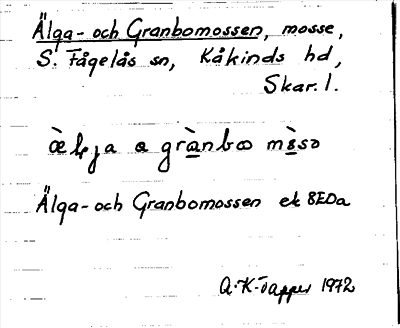 Älga- och Granbomossen, mosse,
S. Fågelås sn, Kåkinds hd,
Skar. l.
a
Älga- och Granbomossen ek 8EDa
A.-K. Tapper 1972